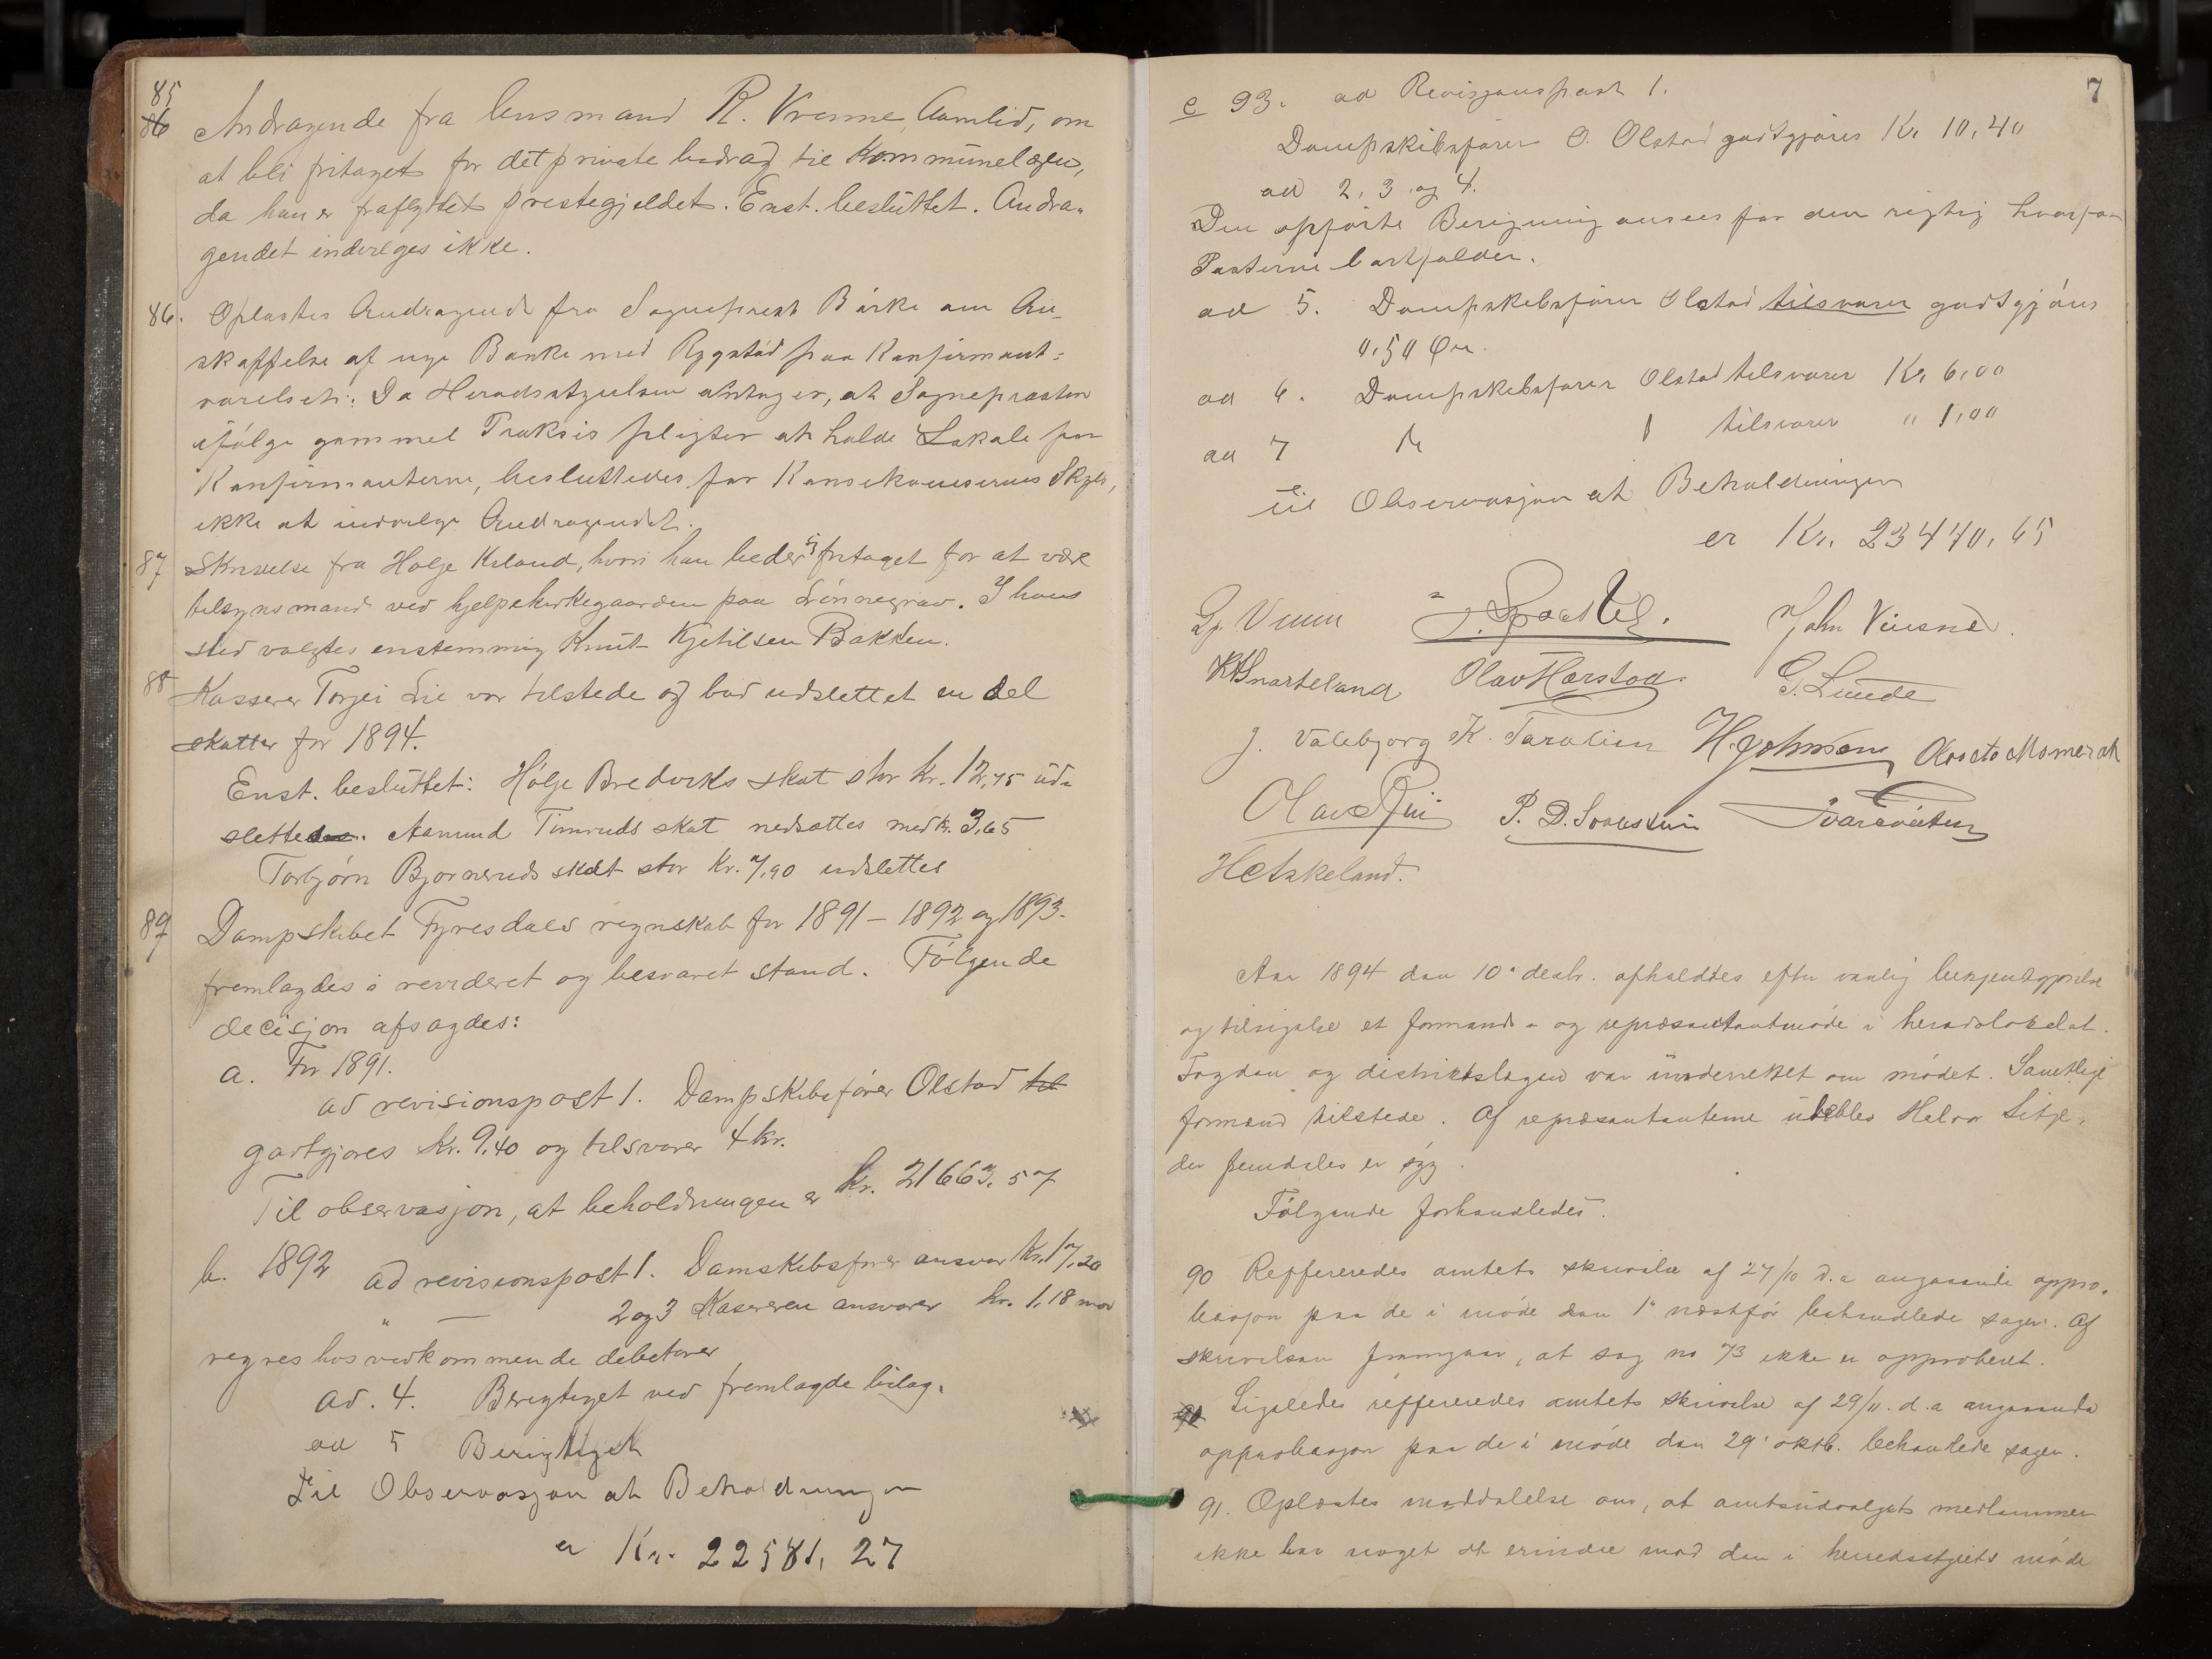 85
86 Andragende fra lensmand R. Vrenne, Aamlid, om
at bli fritaget for det private bidrag til Kommunelægen,
da han er fraflyttet prestegjeldet. Enst. besluttet. Andra-
gendet indvilges ikke.
86. Oplæstes Andragende fra Sogneprest Børke om An-
skaffelse af nye Bænke med Rygstød paa Konfirmant-
værelset. Da Heredsstyrelsen antager, at Sognepræsten
ifølge gammel Praksis pligter at holde Lokale for
Konfirmanterne, besluttedes for Konsekvensernes Skyld,
ikke at indvilge Andragendet.
87 Skrivelse fra Holje Kiland, hvori han beder sig fritaget for at være
tilsynsmand ved hjelpekirkegaarden paa Lønnegrav. I hans
sted valgtes enstemmig Knut Kjetilsen Bakken.
88 Kasserer Torjei Lie var tilstede og bad udslettet en del
skatter for 1894.
Enst. besluttet: Holje Bredviks skat stor kr. 12,75 ud-
slettes. Aamund Timruds skat nedsættes med kr. 3,65
Torbjørn Bjørneruds skat stor kr. 7,90 udslettes
89 Dampskibet Fyresdals regnskab for 1891 – 1892 og 1893.
fremlagdes i revideret og besvaret stand. Følgende
decisjon afsagdes:
a. For 1891.
ad revisionspost 1. Dampskibsfører Olstad til
godtgjøres Kr. 9,40 og tilsvarer 4 kr.
Til observasjon, at beholdningen er kr. 21663,57
b. 1892 ad revisionspost 1. Damskibsfører ansvar Kr. 17,20
" — 2 og 3 Kasereren ansvarer kr. 1,18 mod
regres hos vedkommende debitorer
ad. 4. Berigtiget ved fremlagde bilag.
ad 5 Berigtiget
Til Observasjon at Beholdningen
er Kr. 22581,27
7
c 93. ad Revisjonspost 1.
Dampskibsfører O. Olstad godtgjøres Kr 10,40
ad 2, 3 og 4.
Den opførte Berigning ansees for den rigtig hvorfor
Posterne bortfalder.
ad 5. Dampskibsfører Olstad tilsvarer godtgjøres
0,50 Øre.
ad 6. Dampskibsfører Olstad tilsvarer Kr. 6,00
ad 7 do tilsvarer " 1,00
til Observasjon at Beholdningen
er Kr. 23440,65
John Veusne
Snarteland Olav Harstad. G. Lunde
J. Valebjørg K. Hjohnsen
Olav
H Askeland.
Aar 1894 den 10. decbr. afholdtes efter vanlig bekjentgjørelse
og tilsigelse et formands- og repræsentantmøde i heradslokalet.
Fogden og distriktslægen var underrettet om mødet. Samtlige
formænd tilstede. Af repræsentanterne udeblev Halvor Litje-
der fremdeles er syg.
Følgende forhandledes.
90 Reffereredes amtets skrivelse af 27/10 d.a angaaende appro-
basjon paa de i møde den 1. næstfør behandlede sager. Af
skrivelsen fremgaar, at sag no 73 ikke er approberet.
90 Ligeledes reffereredes amtets skrivelse af 29/11. d.a angaaende
approbasjon paa de i møde den 29. oktb. behandlede sager.
91. Oplæstes meddelelse om, at amtsudvalgets medlemmer
ikke har noget at erindre mod den i heredsstyrets møde